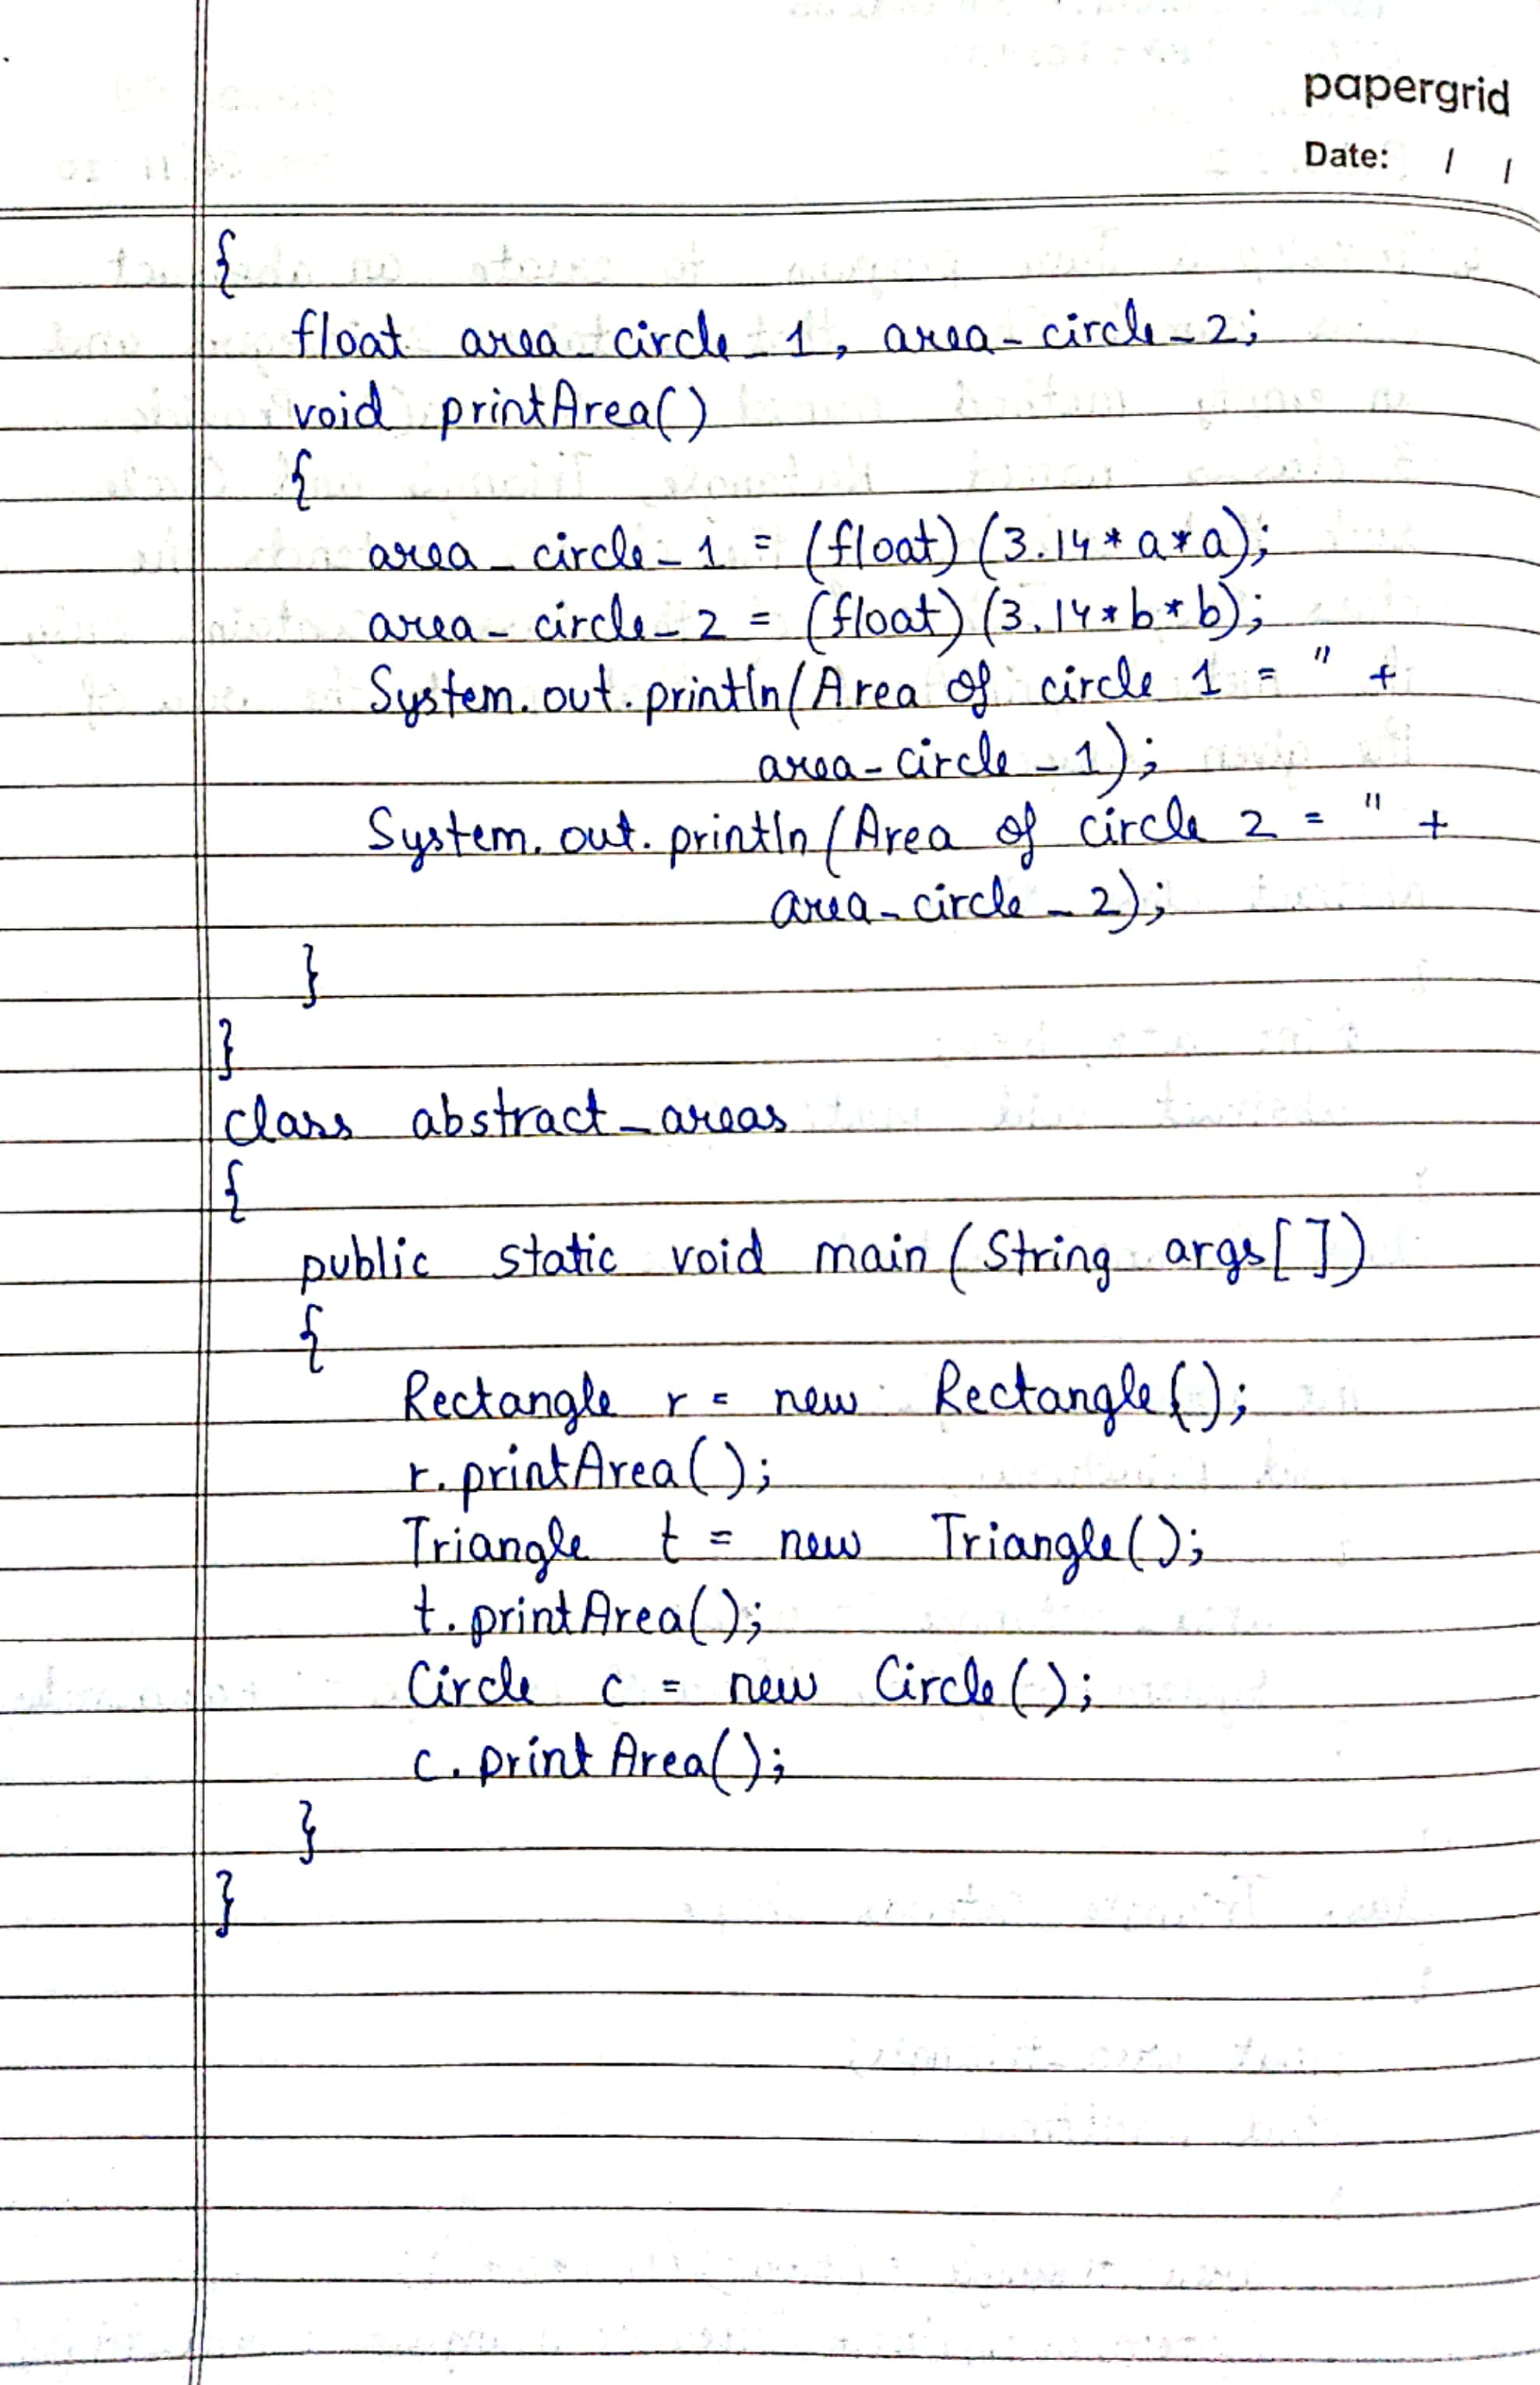 papergrid
Date: / /
{
float area_circle_1, area_circle_2;
void printArea()
{
area_circle_1 = (float) (3.14*a*a);
area_circle_2 = (float) (3.14*b*b);
System.out.println(Area of circle 1 = " +
area_circle_1);
System.out.println(Area of circle 2 = " +
area_circle_2);
}
}
class abstract_areas
{
public static void main(String args[])
{
Rectangle r = new Rectangle();
r.printArea();
Triangle t = new Triangle();
t.printArea();
Circle c = new Circle();
c.printArea();
}
}